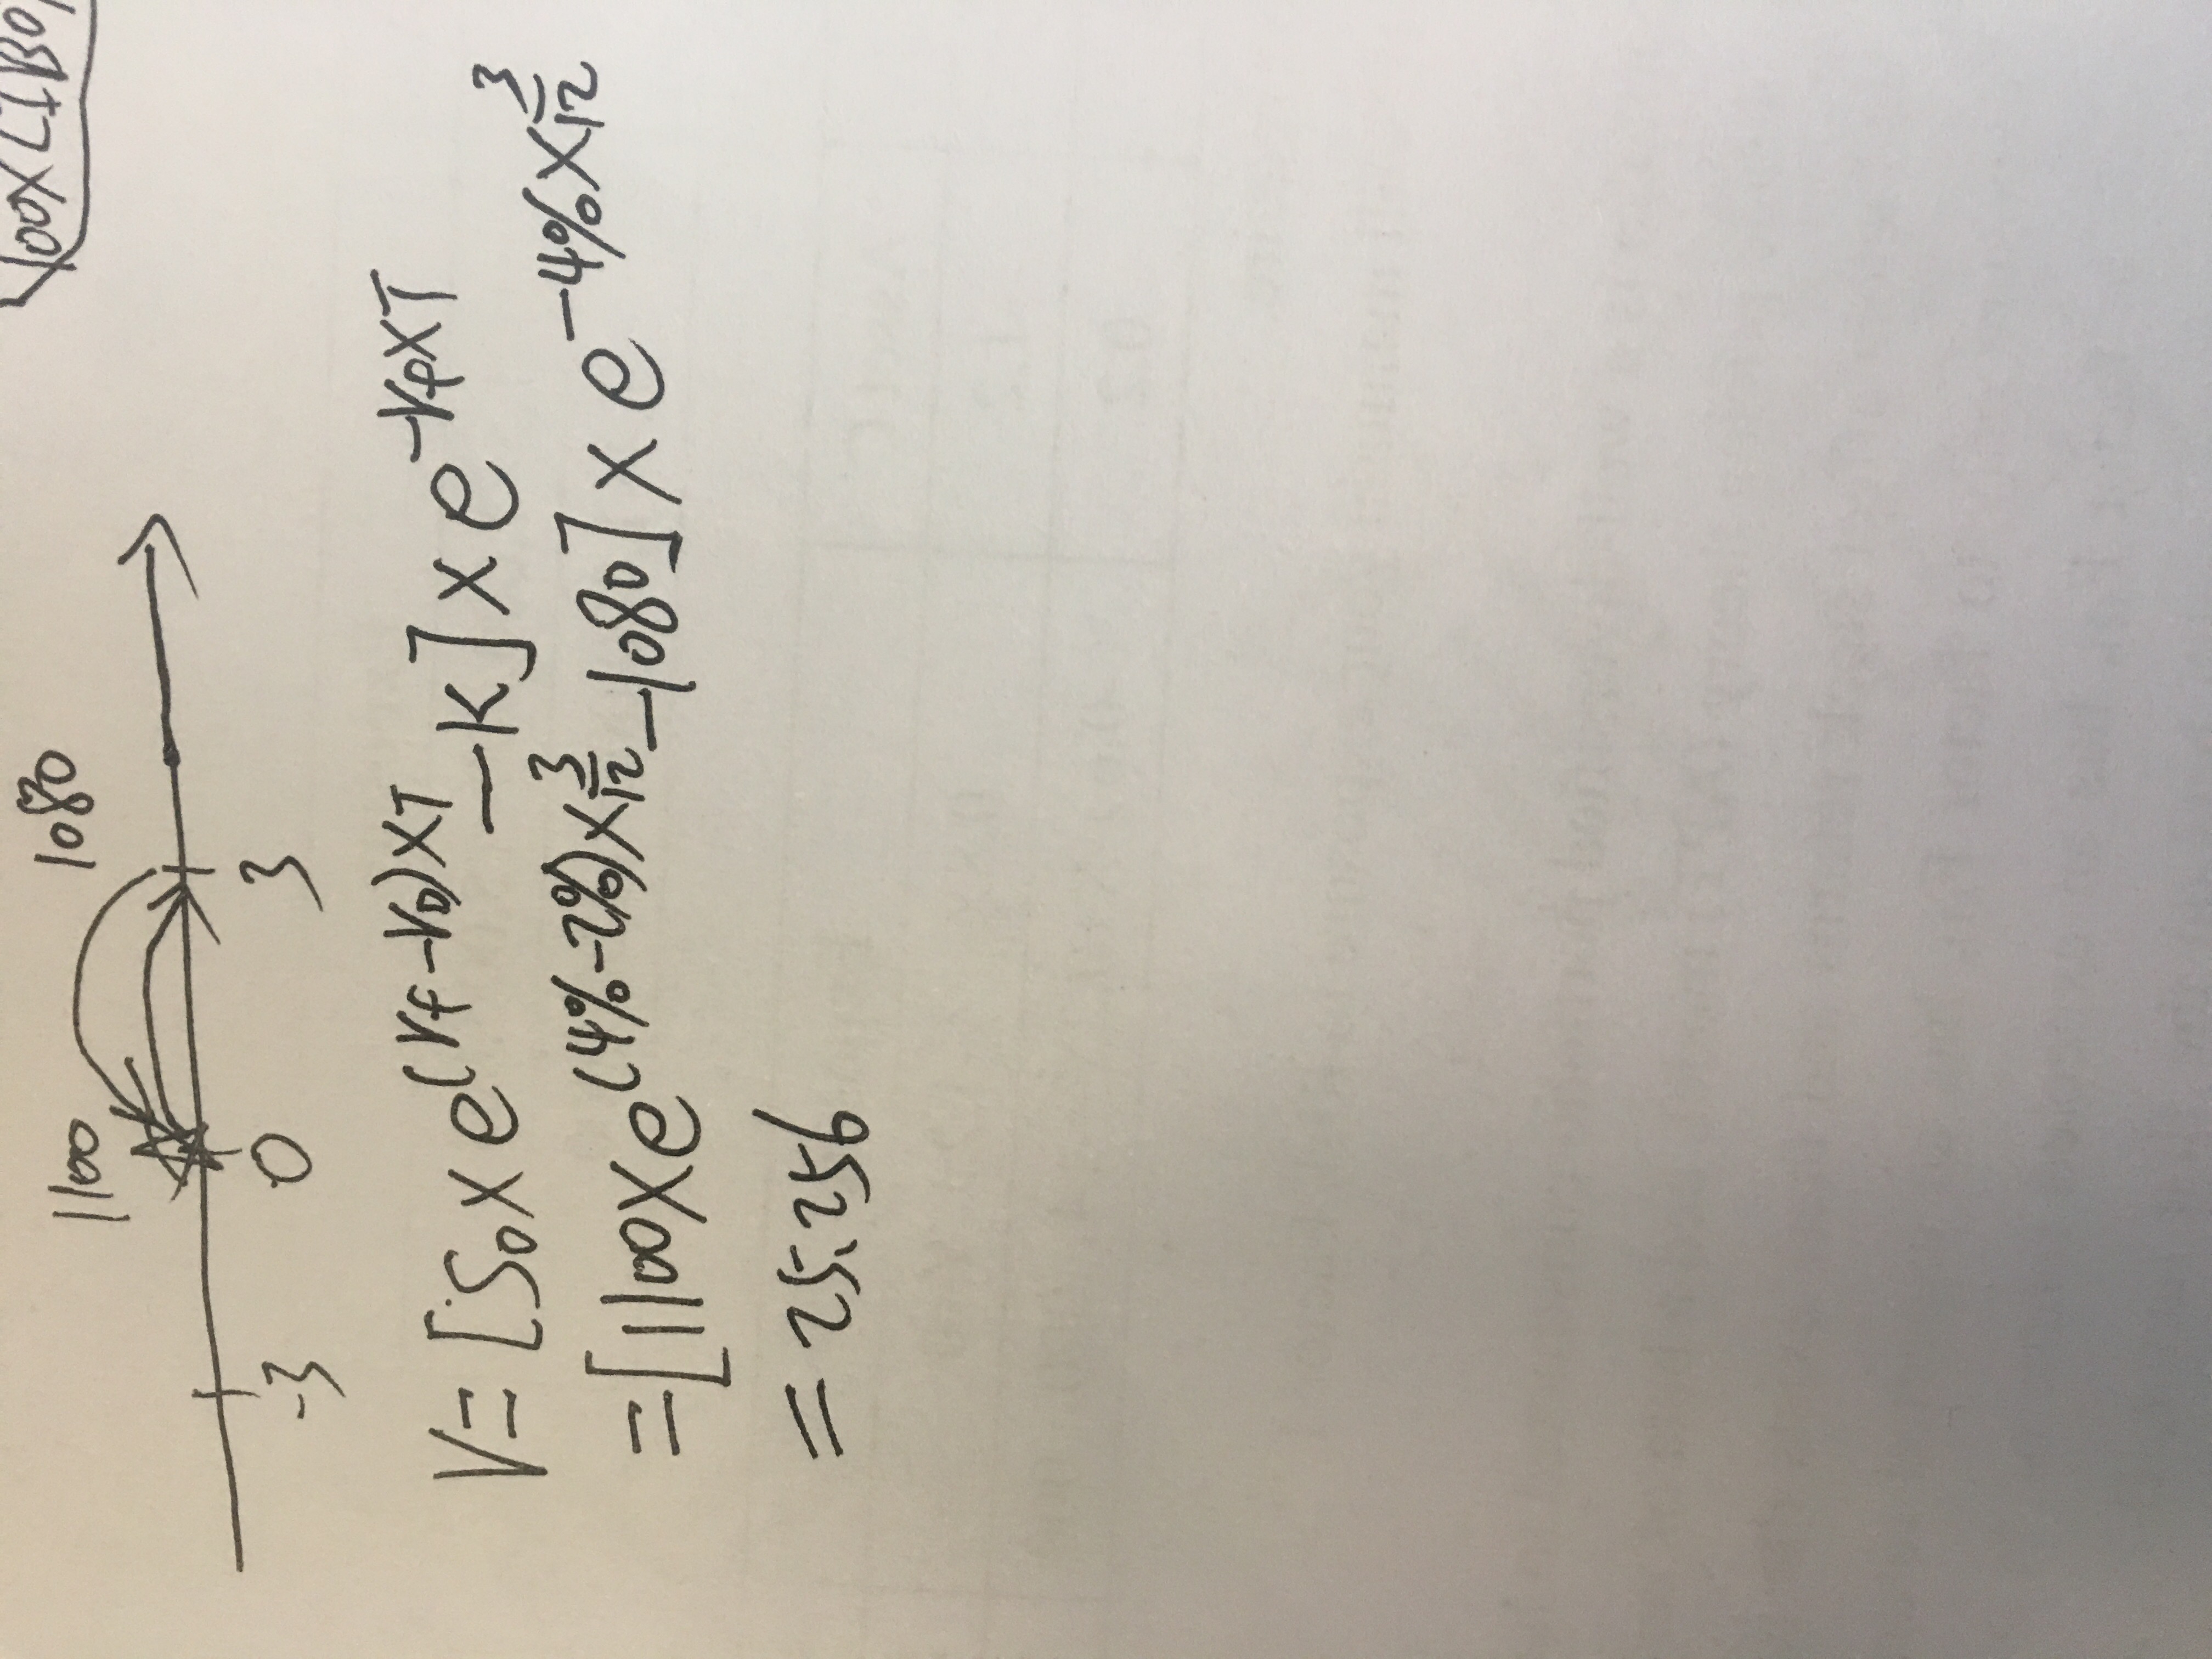 1100 1080
-3 0 3
V=[S₀×e^(rf-r₀)×T-K]×e^-rf×T
=[1100×e^(4%-2%)×3/12-1080]×e^-4%×3/12
=25.256